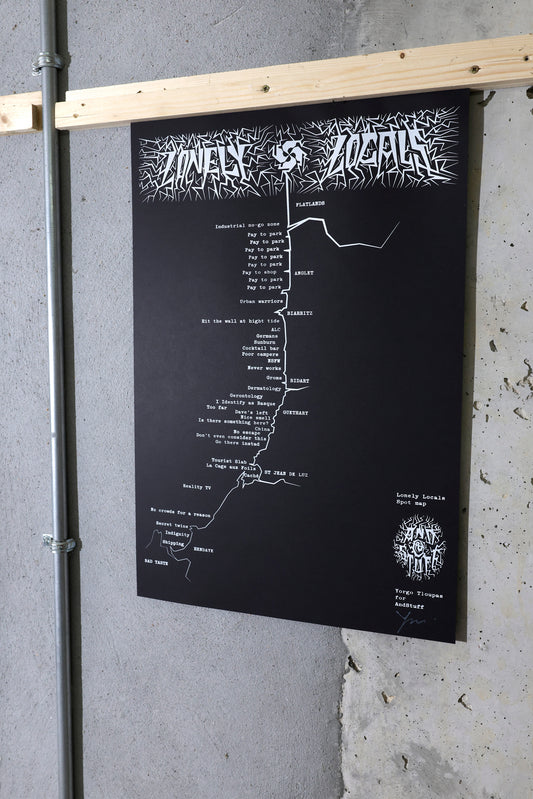 LONELY LOCALS
FLATLANDS
Industrial no-go zone
Pay to park
Pay to park
Pay to park
Pay to park
Pay to park
Pay to shop
ANGLET
Pay to park
Pay to park
Urban warriors
BIARRITZ
Hit the wall at hight tide
ALC
Germans
Sunburn
Cocktail bar
Poor campers
NSFW
Never works
Groms
BIDART
Dermatology
Gerontology
I Identify as Basque
Too far
GUETHARY
Dave's left
Nice smell
Is there something here?
China
No escape
Don't even consider this
Go there instead
Tourist Slab
La Cage aux Foils
Caché
ST JEAN DE LUZ
Reality TV
No crowds for a reason
Secret twins
Indignity
Shipping
HENDAYE
BAD TASTE
Lonely Locals
Spot map
AND
STUFF
Yorgo Tloupas
for
AndStuff